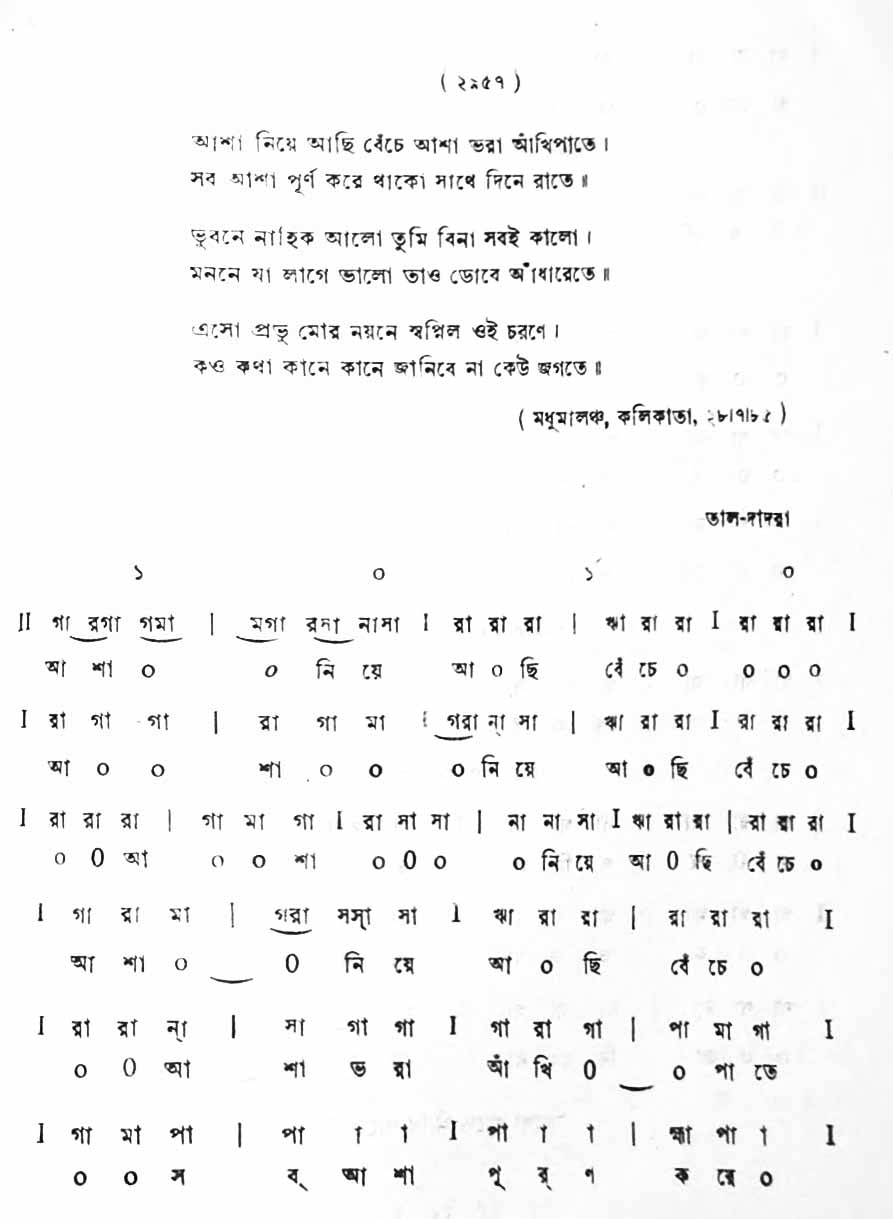 ( ২৯৫৭ )
আশা নিয়ে আছি বেঁচে আশা ভরা আঁখিপাতে ।
সব আশা পূর্ণ করে থাকো সাথে দিনে রাতে ॥
ভুবনে নাহিক আলো তুমি বিনা সবই কালো ।
মননে যা লাগে ভালো তাও ডোবে আঁধারেতে ॥
এসো প্রভু মোর নয়নে স্বপ্নিল ওই চরণে ।
কও কথা কানে কানে জানিবে না কেউ জগতে ॥
( মধুমালঞ্চ, কলিকাতা, ২৮।৭।৮৫ )
তাল-দাদরা
১ ০ ১ ০
II গা রগা গমা | মগা রসা নাসা I রা রা রা | ঋা রা রা I রা রা রা I
আ শা ০ ০ নি য়ে আ ০ ছি বেঁ চে ০ ০ ০ ০
I রা গা গা | রা গা মা I গরা ন্া সা | ঋা রা রা I রা রা রা I
আ ০ ০ শা ০ ০ ০ নি য়ে আ ০ ছি বেঁ চে ০
I রা রা রা | গা মা গা I রা সা সা | না না সা I ঋা রা রা | রা রা রা I
০ ০ আ ০ ০ শা ০ ০ ০ ০ নি য়ে আ ০ ছি বেঁ চে ০
I গা রা মা | গরা সস্া সা I ঋা রা রা | রা রা রা I
আ শা ০ ০ নি য়ে আ ০ ছি বেঁ চে ০
I রা রা ন্া | সা গা গা I গা রা গা | পা মা গা I
০ ০ আ শা ভ রা আঁ খি ০ ০ পা তে
I গা মা পা | পা া া I পা া া | হ্মা পা া I
০ ০ স ব্ আ শা পূ র্ ণ ক রে ০